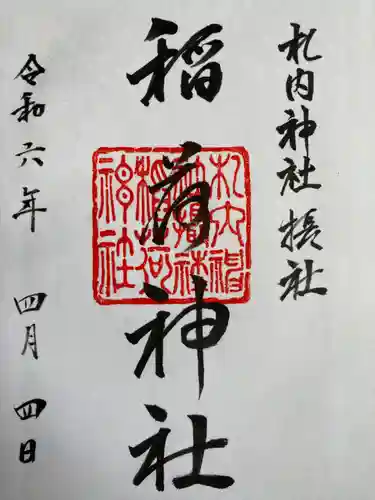 札内神社 摂社
稲荷神社
札内神
社摂社
稲荷
神社
令和六年 四月 四日